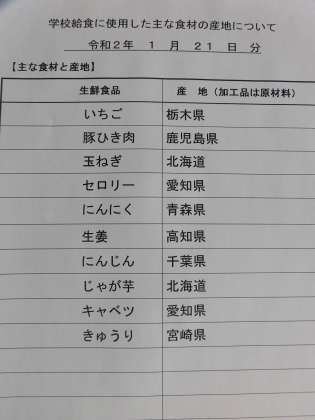 学校給食に使用した主な食材の産地について
令和2年 1 月 21 日 分
【主な食材と産地】
生鮮食品 産 地（加工品は原材料）
いちご 栃木県
豚ひき肉 鹿児島県
玉ねぎ 北海道
セロリー 愛知県
にんにく 青森県
生姜 高知県
にんじん 千葉県
じゃが芋 北海道
キャベツ 愛知県
きゅうり 宮崎県